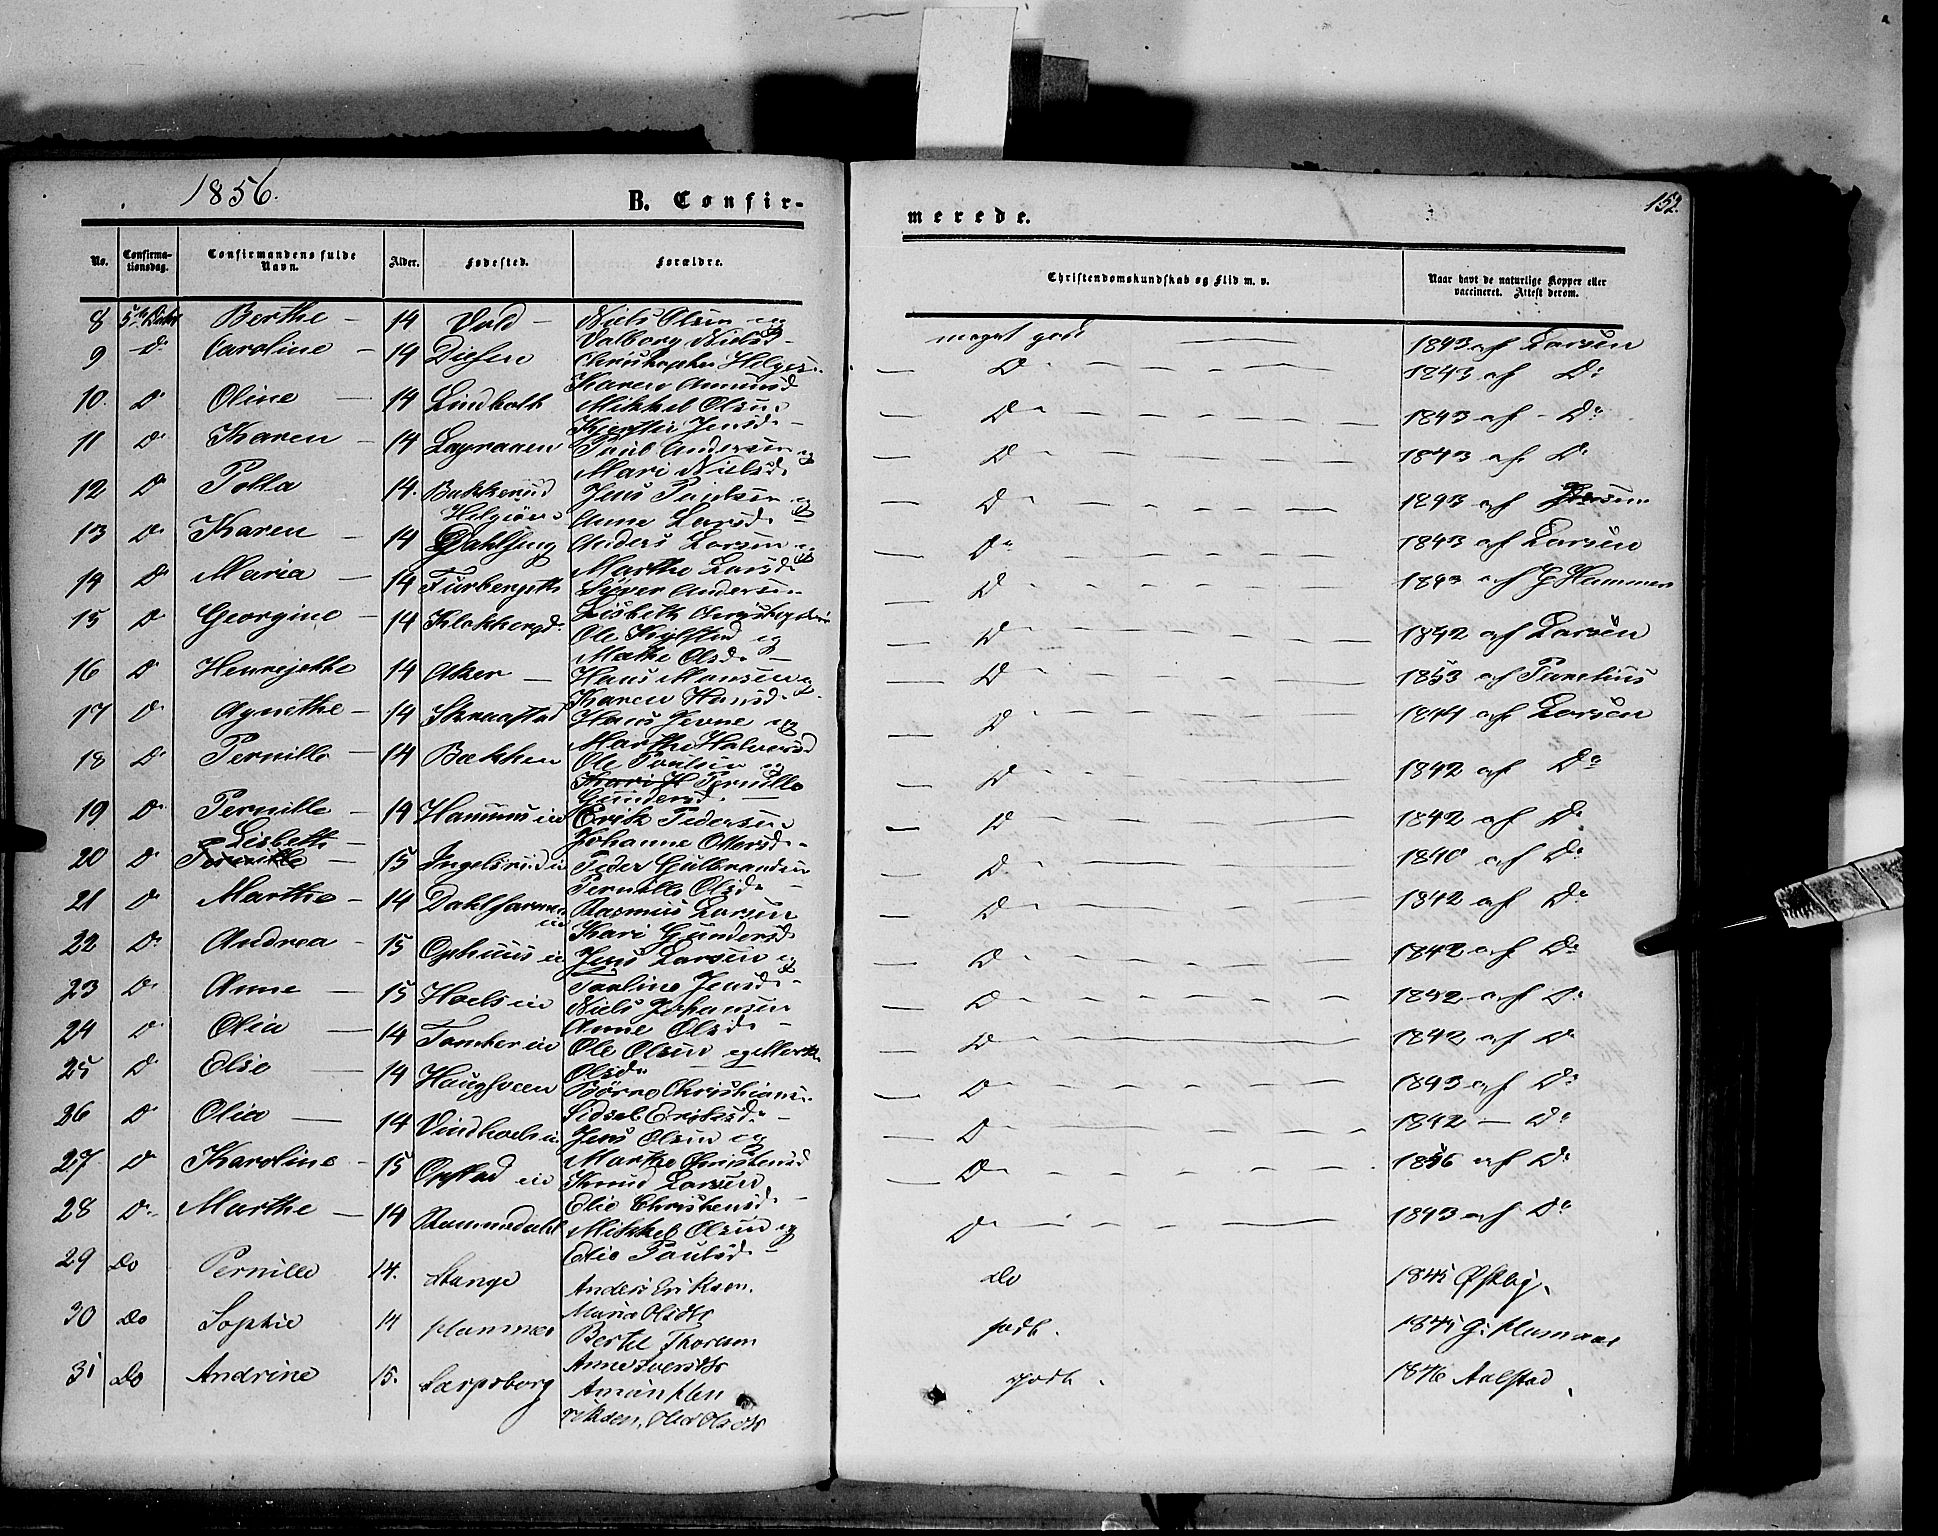 1856.
B. Confir-
merede.
152.
No. Confirma-tionsdag. Confirmandens fulde Navn. Alder. Fødested. Forældre. Christendomskundskab og Flid m. v. Naar havt de naturlige Kopper eller vaccineret. Attest derom.
8 5te Berthe — 14 Vold — Niels Olsen og Valborg Nielsd. meget godt 1843 af Larsen
9 Do Caroline — 14 Diesen Christopher Helges. Karen Amundsd — Do 1843 af Do
10. Do Oline — 14 Lindholt Mikkel Olsen Kjersti Jensd. — Do 1843 af Do
11 Do Karen — 14 Paul Andersen og Mari Nielsd. — Do 1843 af Do
12 Do Polla 14. Bakkerud Helgøen Jens Paulsen og Anne Larsd. — Do 1843 af
13 Do Karen — 14 Dahlseng Anders Larsen og Marthe Larsd. — Do 1843 af Larsen
14 Do Maria — 14 Furbergeth Syver Andersen Lisbeth — Do 1843 af G Hammer
15 Do Georgine — 14 Klokkergd. Ole Kylstad og Mathe Olsd. — Do 1842 af Larsen
16 Do Henrijette 14 Aker — Hans Hansen og Karen Hansd. — Do 1853 af Parelius
17 Do Agnethe — 14 Skraastad Hans Jevne og Marthe Halvorsd — Do 1844 af Larsen
18 Do Pernille — 14 Bækken Ole Poulsen og Kari H Pernille Gundersd. — Do 1842 af Do
19 Do Pernille — 14 Erik Pedersen Johanne Ottersd. — Do 1842 af Do
20 Do Lisbeth — Pernille — 15 Ingelsrud Peder Gulbrandsen Pernille Olsd. — Do 1840 af Do
21 Do Marthe — 14 Rasmus Larsen Kari Gundersd. — Do 1842 af Do
22 Do Andrea — 15 Ophuus Jens Larsen og Pauline Jensd. — Do 1842 af Do
23 Do Anne — 15 Hoels Niels Johansen Anne Olsd. — Do 1842 af Do
24 Do Olia — 14 Tomter Ole Olsen og Marthe Olsd. — Do 1842 af Do
25 Do Elise — 14 Haugsveen Børre Christians. Sidsel Eriksd. — Do 1843 af Do
26 Do Olia — 14 Jens Olsen og Marthe Christensd — Do 1842 — Do
27 Do Karoline — 15 Opstad Knud Larsen Elie Christensd. — Do 1856 af Do
28 Do Marthe — 14 Rommedahl Mikkel Olsen og Elie Paulsd. — Do 1843 af Do
29 do Pernille 14. Stange Anders Eriksen. Maria Olsdtr do 1845 Østby.
30 do Sophie 14 Hammer Bertel Thorsen Anne Iversdtr godt. 1845 G. Hammer
31 do Andrine 15. Sarpsborg Amund Eriksen, Olea Olsdtr godt. 1846 Aalstad